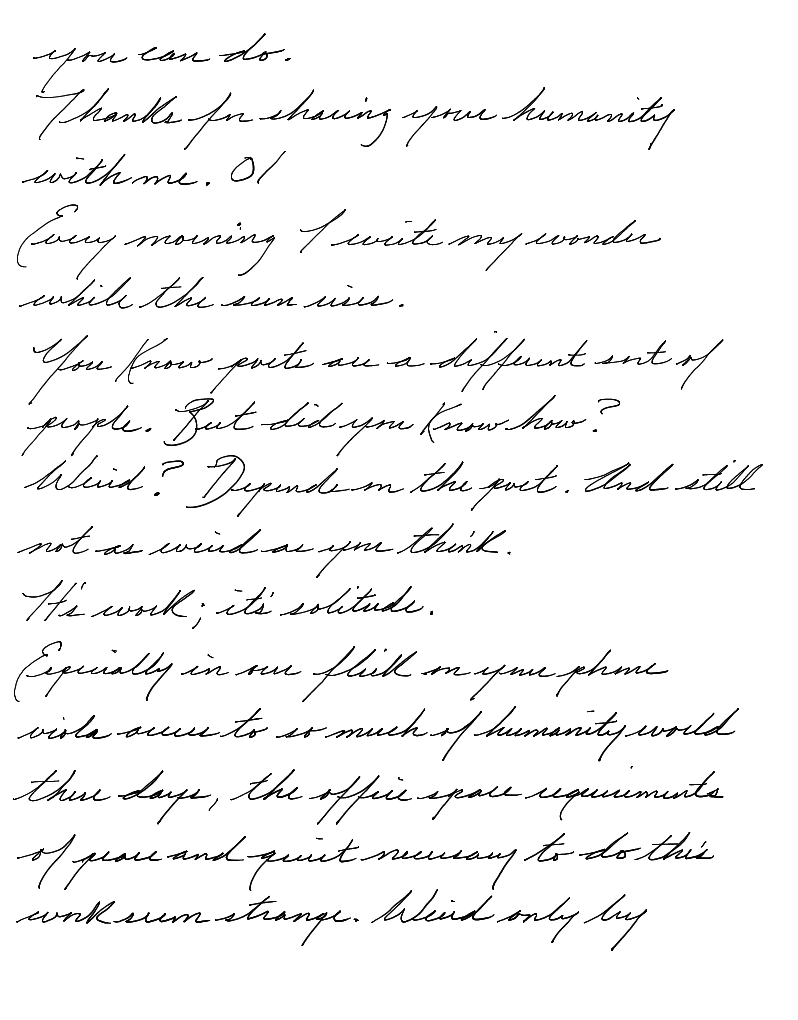 you can do.
Thanks for sharing your humanity
with me. 01
Every morning I write my wonder
while the sun rises.
You know poets are a different sort of
people. But did you know how?
Weird? Depends on the poet. And still
not as weird as you think.
It's work; it's solitude.
Especially in our flick on your phone
viola access to so much of humanity world
these days, the office space requirements
of peace and quiet necessary to do this
work seem strange. Weird only by